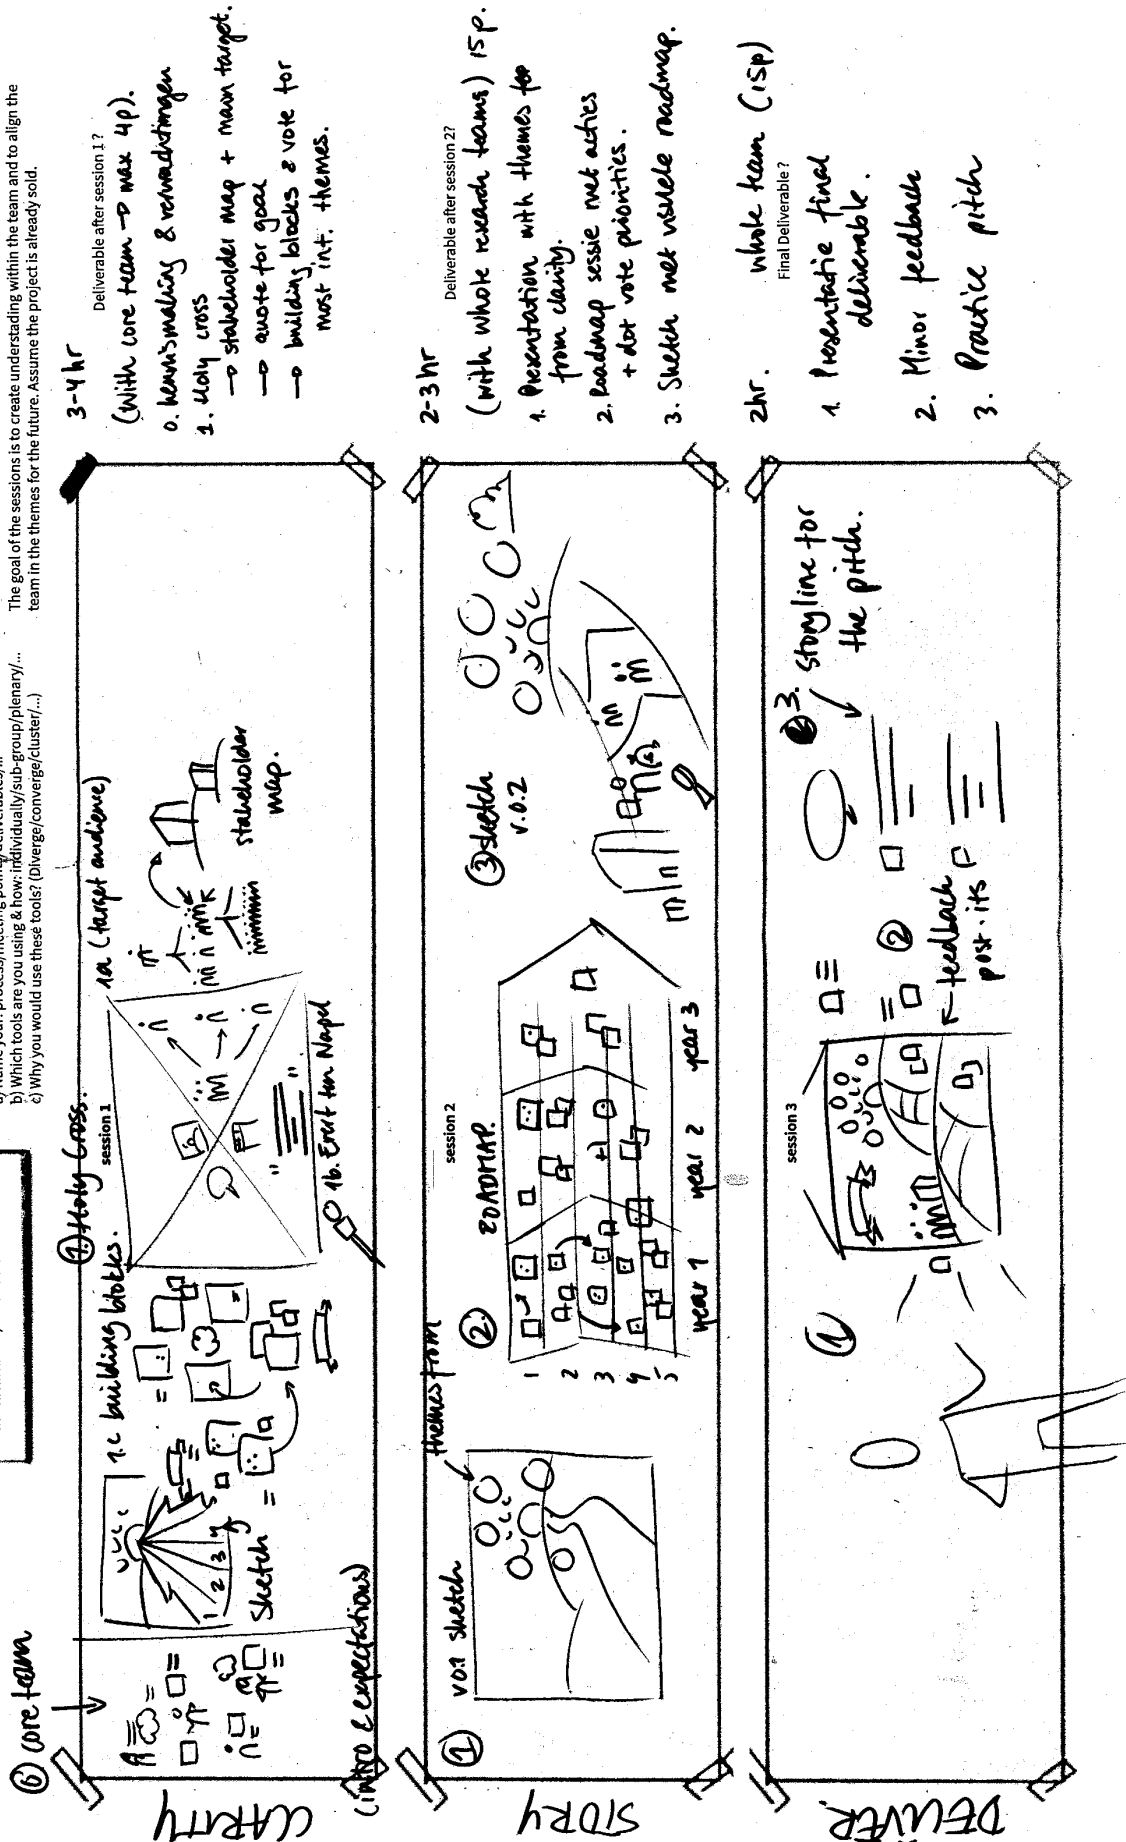 a) Name your process/meeting points/deliverables/...
b) Which tools are you using & how: individually/sub-group/plenary/...
c) Why you would use these tools? (Diverge/converge/cluster/...)
The goal of the sessions is to create understading within the team and to align the
team in the themes for the future. Assume the project is already sold.
CLARITY
core team
(intro & expectations)
1 2 3 4
Sketch
1.c building blocks.
1. Holy Cross.
session 1
1b. Evert ten Napel
1a (target audience)
stakeholder
map.
3-4 hr
Deliverable after session 1?
(With core team → max 4p).
0. kennismaking & verwachtingen
1. Holy cross
→ stakeholder map + main target.
→ quote for goal
→ building blocks & vote for
most int. themes.
STORY
1
v0.1 sketch
themes from
session 2
2. ROADMAP.
1
2
3
4
5
year 1 year 2 year 3
3 sketch
v.0.2
2-3 hr
Deliverable after session 2?
(with whole research teams) 15p.
1. Presentation with themes
from clarity.
2. Roadmap sessie met acties
+ dot vote priorities.
3. Sketch met visuele roadmap.
DELIVER
1
session 3
2
← feedback
post-its
3. storyline for
the pitch.
2hr.
whole team (15p)
Final Deliverable?
1. Presentatie final
deliverable.
2. Minor feedback
3. Practice pitch